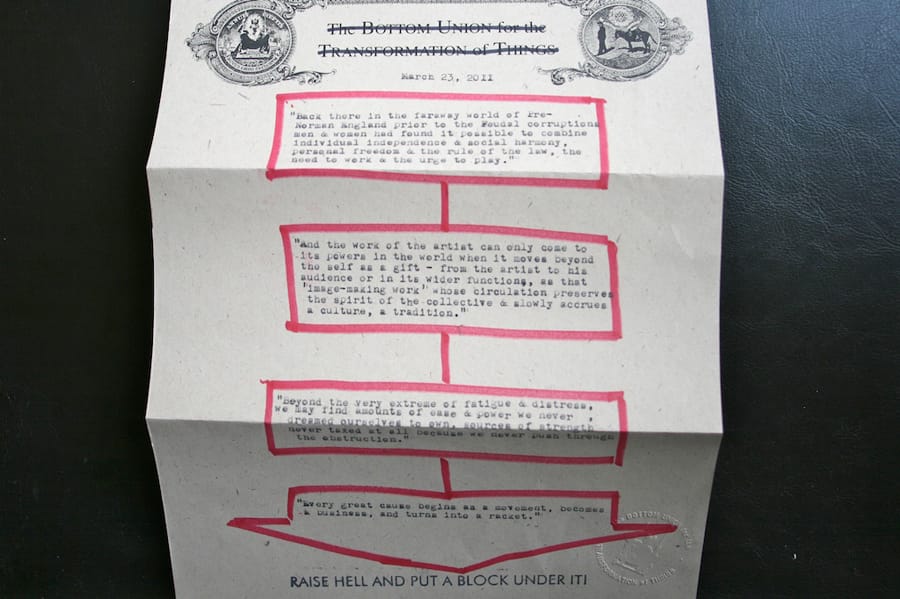 The Bottom Union for the
Transformation of Things
March 23, 2011
"Back there in the faraway world of Pre-
Norman England prior to the Feudal corruptions
men & women had found it possible to combine
individual independence & social harmony,
personal freedom & the rule of the law, the
need to work & the urge to play."
"And the work of the artist can only come to
its powers in the world when it moves beyond
the self as a gift - from the artist to his
audience or in its wider functions, as that
'image-making work' whose circulation preserves
the spirit of the collective & slowly accrues
a culture, a tradition."
"Beyond the very extreme of fatigue & distress,
we may find amounts of ease & power we never
dreamed ourselves to own, sources of strength
never taxed at all because we never push through
the obstruction."
"Every great cause begins as a movement, becomes
a business, and turns into a racket."
BOTTOM UNION
TRANSFORMATION of THINGS
RAISE HELL AND PUT A BLOCK UNDER IT!